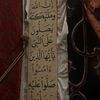 إن الله
وملائكته
يصلون
على النبي
يا أيها الذين
آمنوا
صلوا عليه